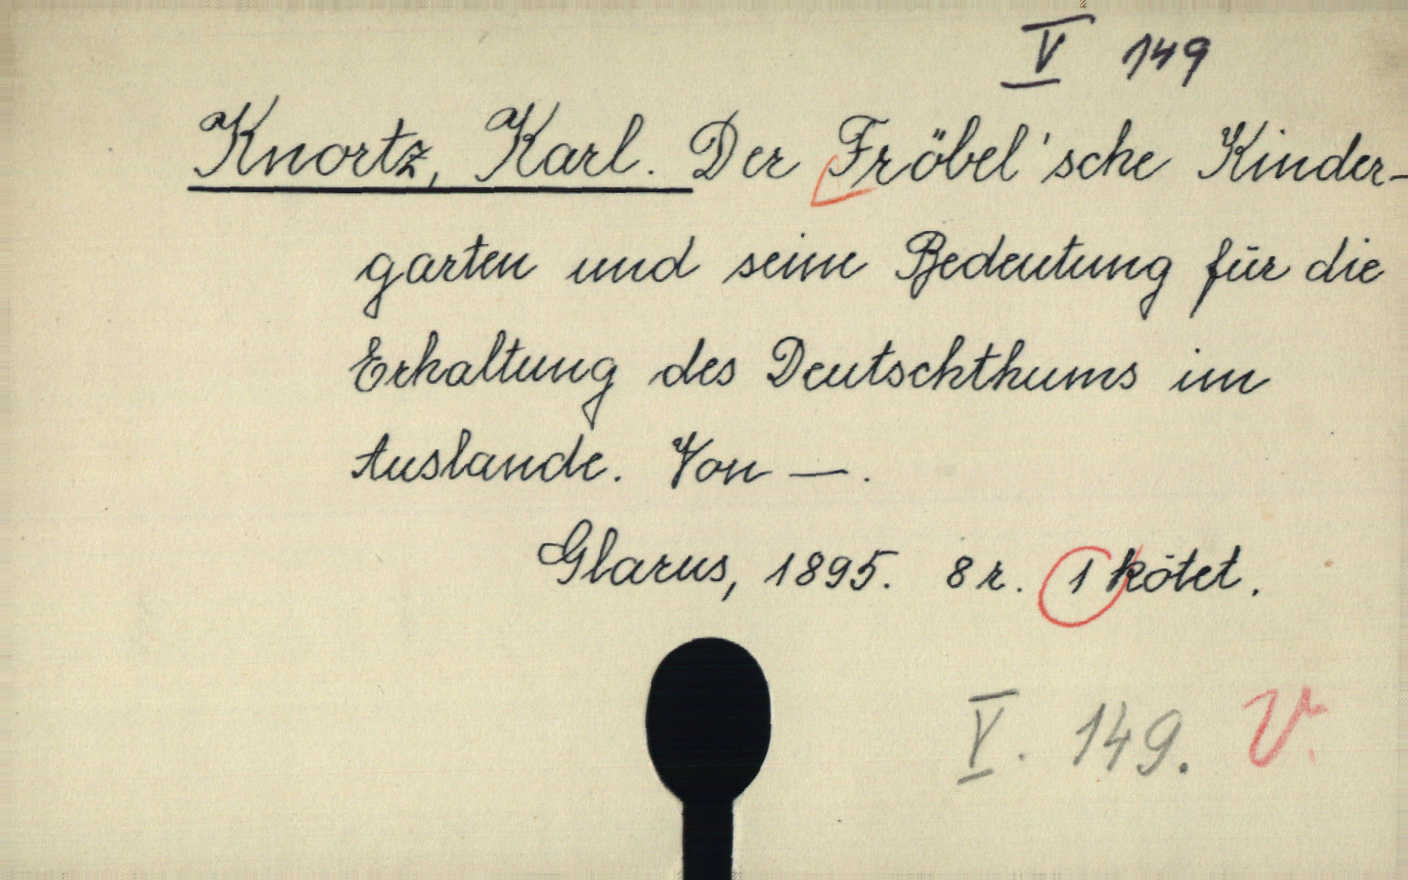 V 149
Knortz, Karl. Der Fröbel'sche Kinder-
garten und seine Bedeutung für die
Erhaltung des Deutschthums im
Auslande. Von —.
Glarus, 1895. 8 r. 1 kötet.
V. 149. V.